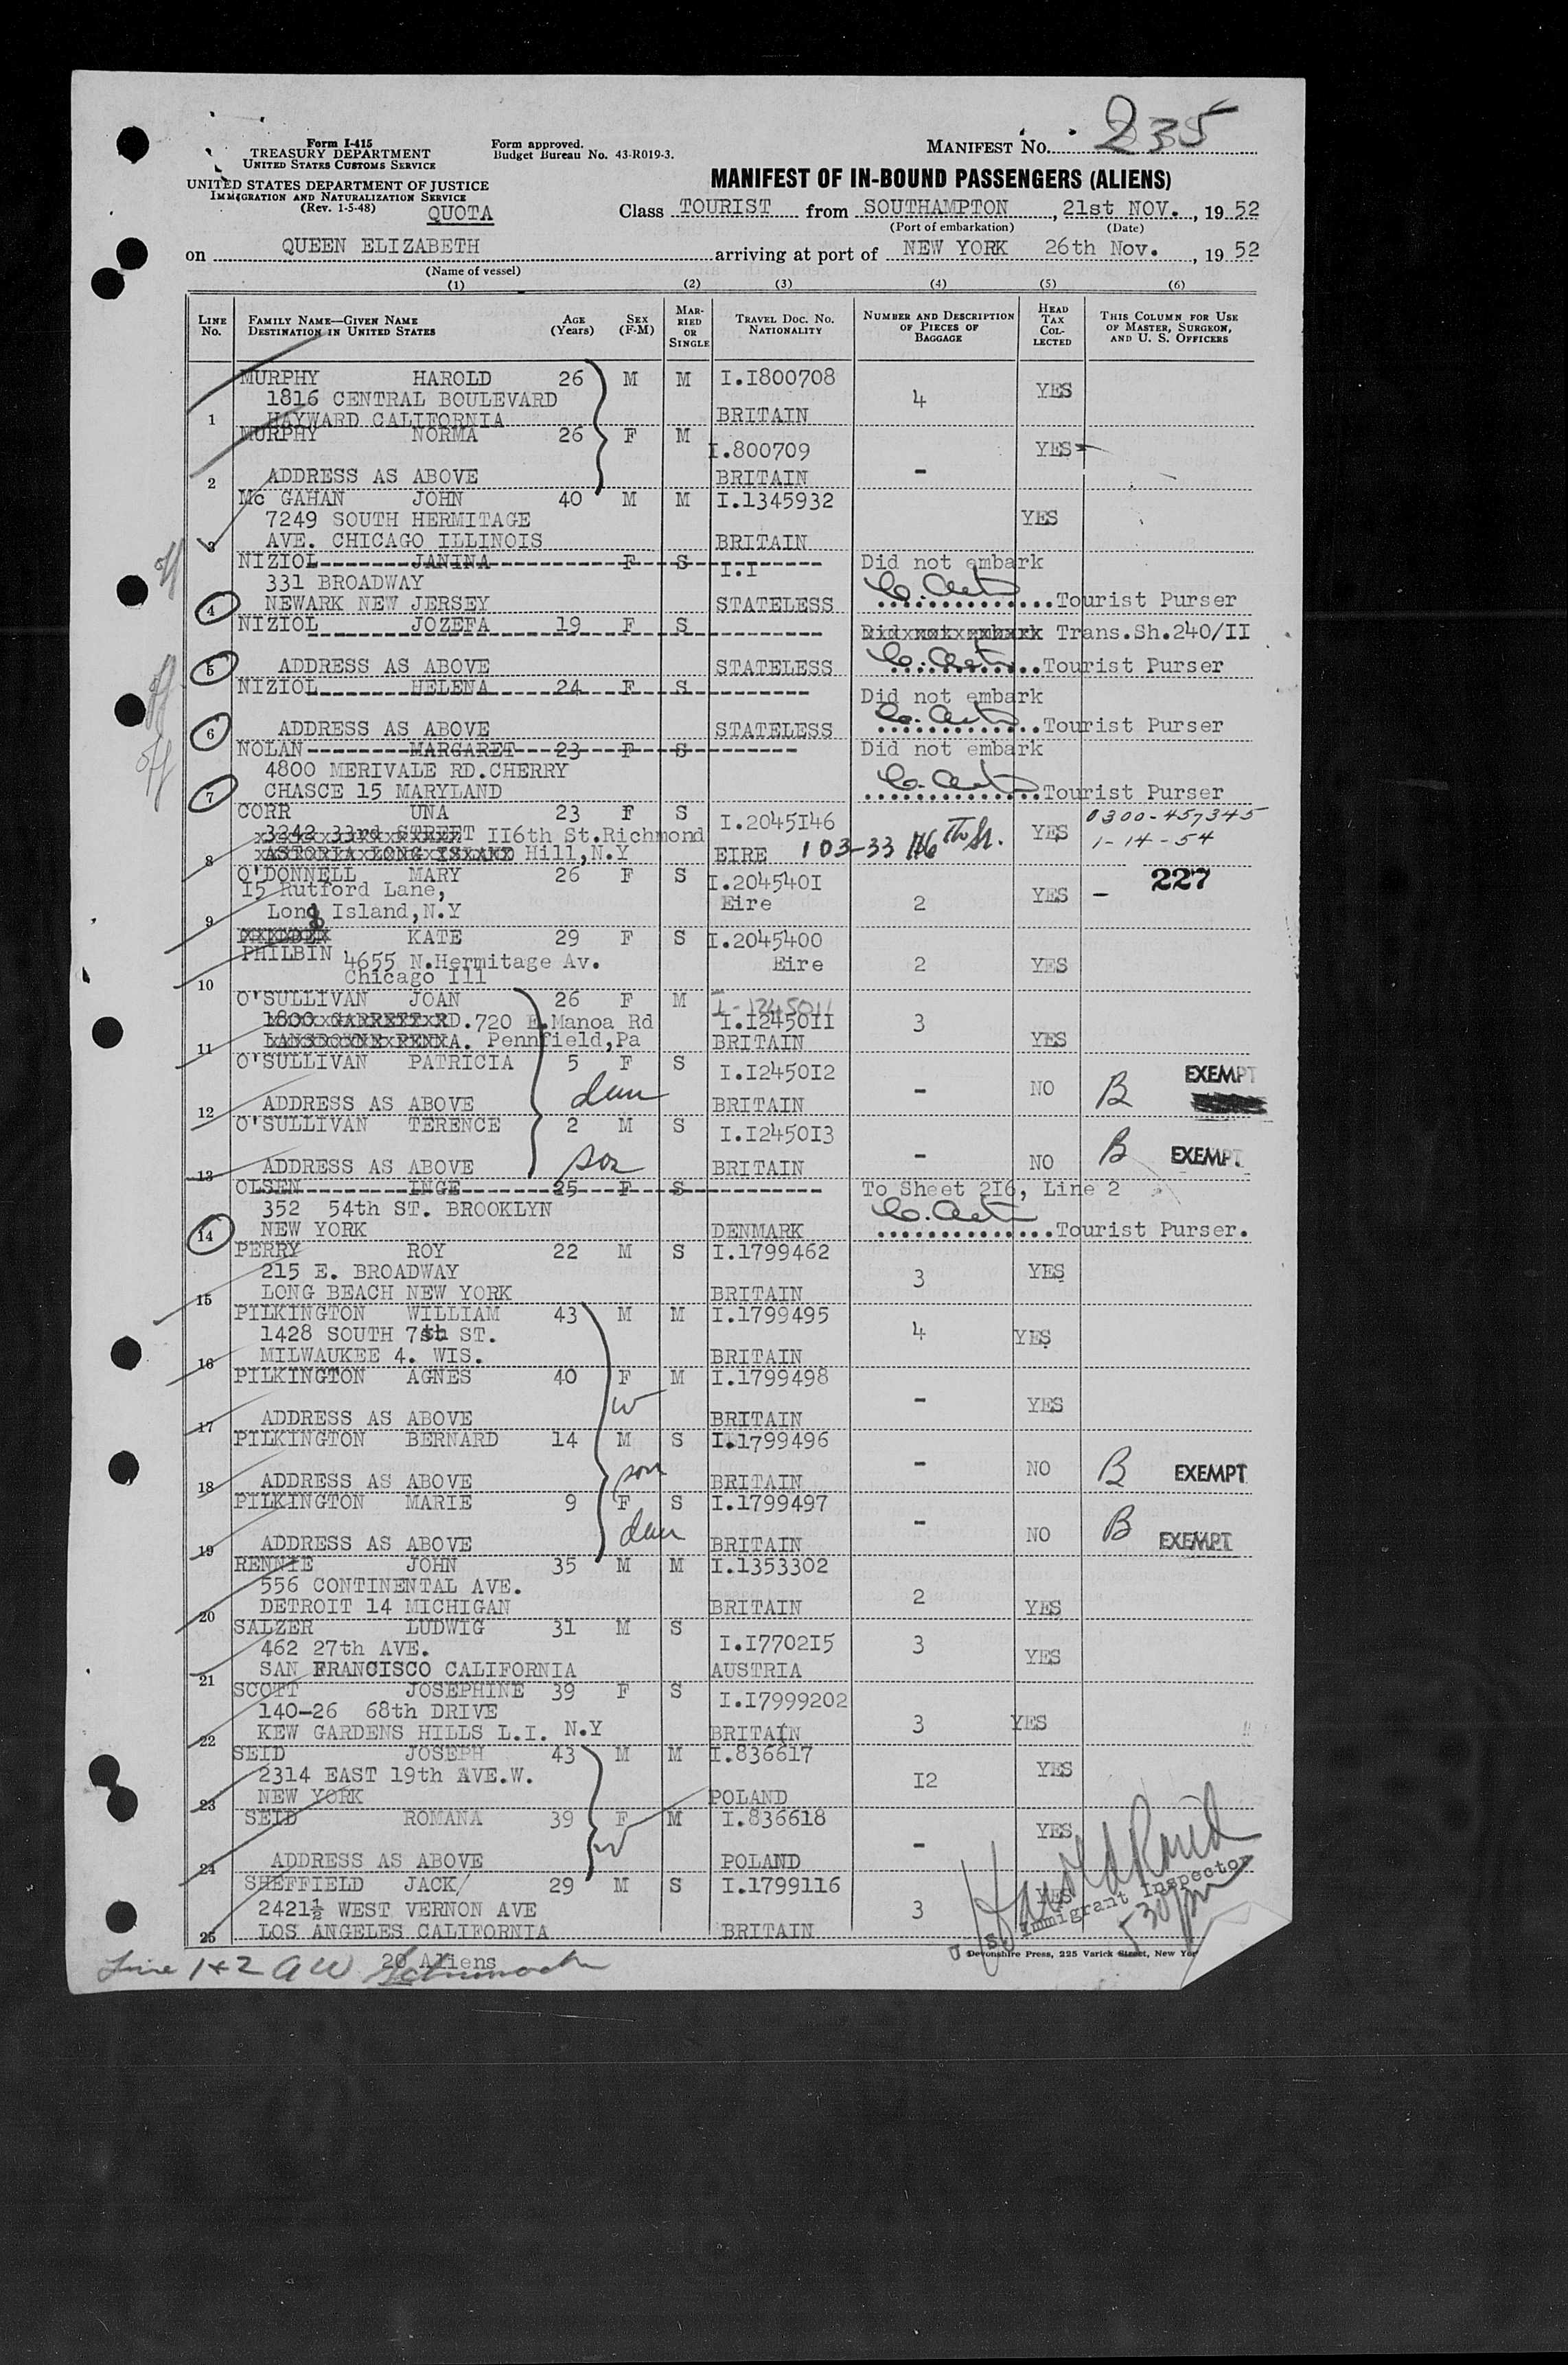 235
Form I-415
TREASURY DEPARTMENT
UNITED STATES CUSTOMS SERVICE
Form approved.
Budget Bureau No. 43-R019-3.
MANIFEST NO.
UNITED STATES DEPARTMENT OF JUSTICE
IMMIGRATION AND NATURALIZATION SERVICE
(Rev. 1-5-48)
QUOTA
MANIFEST OF IN-BOUND PASSENGERS (ALIENS)
Class TOURIST from SOUTHAMPTON, 21st NOV., 19 52
(Port of embarkation) (Date)
on QUEEN ELIZABETH arriving at port of NEW YORK 26th Nov., 19 52
(Name of vessel)
(1) (2) (3) (4) (5) (6)
LINE No. FAMILY NAME—GIVEN NAME DESTINATION IN UNITED STATES AGE (Years) SEX (F-M) MARRIED OR SINGLE TRAVEL DOC. NO. NATIONALITY NUMBER AND DESCRIPTION OF PIECES OF BAGGAGE HEAD TAX COLLECTED THIS COLUMN FOR USE OF MASTER, SURGEON, AND U. S. OFFICERS
MURPHY HAROLD 26 M M I.I800708
1816 CENTRAL BOULEVARD 4 YES
1 HAYWARD CALIFORNIA BRITAIN
MURPHY NORMA 26 F M I.800709 YES
2 ADDRESS AS ABOVE BRITAIN -
Mc GAHAN JOHN 40 M M I.1345932
7249 SOUTH HERMITAGE YES
3 AVE. CHICAGO ILLINOIS BRITAIN
NIZIOL JANINA F S I.I Did not embark
331 BROADWAY
4 NEWARK NEW JERSEY STATELESS Tourist Purser
NIZIOL JOZEFA 19 F S Did not embark Trans.Sh.240/II
5 ADDRESS AS ABOVE STATELESS Tourist Purser
NIZIOL HELENA 24 F S Did not embark
6 ADDRESS AS ABOVE STATELESS Tourist Purser
NOLAN MARGARET 23 F S Did not embark
4800 MERIVALE RD.CHERRY
7 CHASCE 15 MARYLAND Tourist Purser
CORR UNA 23 F S I.2045I46 YES 0300-457345
3242 33rd STREET II6th St.Richmond 1-14-54
8 ASTORIA LONG ISLAND Hill,N.Y EIRE 103-33 116th St.
O'DONNELL MARY 26 F S I.204540I 227
I5 Rutford Lane, Eire 2 YES -
9 Long Island,N.Y
KATE 29 F S I.2045400
PHILBIN 4655 N.Hermitage Av. Eire 2 YES
10 Chicago Ill
O'SULLIVAN JOAN 26 F M I-1245011
1800 GARRETT RD.720 E.Manoa Rd I.I2450II 3
11 LANSDOWNE PENNA. Pennfield,Pa BRITAIN YES
O'SULLIVAN PATRICIA 5 F S I.I2450I2 EXEMPT
dau - NO B
12 ADDRESS AS ABOVE BRITAIN
O'SULLIVAN TERENCE 2 M S I.I2450I3
13 ADDRESS AS ABOVE son BRITAIN - NO B EXEMPT
OLSEN INGE 25 F S To Sheet 2I6, Line 2
352 54th ST. BROOKLYN
14 NEW YORK DENMARK Tourist Purser.
PERRY ROY 22 M S I.1799462
215 E. BROADWAY 3 YES
15 LONG BEACH NEW YORK BRITAIN
PILKINGTON WILLIAM 43 M M I.1799495
1428 SOUTH 7th ST. 4 YES
16 MILWAUKEE 4. WIS. BRITAIN
PILKINGTON AGNES 40 F M I.1799498
w - YES
17 ADDRESS AS ABOVE BRITAIN
PILKINGTON BERNARD 14 M S I.1799496
son - NO B EXEMPT
18 ADDRESS AS ABOVE BRITAIN
PILKINGTON MARIE 9 F S I.1799497
dau - NO B EXEMPT
19 ADDRESS AS ABOVE BRITAIN
RENNIE JOHN 35 M M I.1353302
556 CONTINENTAL AVE. 2
20 DETROIT 14 MICHIGAN BRITAIN YES
SALZER LUDWIG 31 M S I.I7702I5 3
462 27th AVE. YES
21 SAN FRANCISCO CALIFORNIA AUSTRIA
SCOTT JOSEPHINE 39 F S I.I7999202
140-26 68th DRIVE 3 YES
22 KEW GARDENS HILLS L.I. N.Y BRITAIN
SEID JOSEPH 43 M M I.836617
2314 EAST 19th AVE.W. I2 YES
23 NEW YORK POLAND
SEID ROMANA 39 F M I.836618 YES
w -
24 ADDRESS AS ABOVE POLAND
SHEFFIELD JACK 29 M S I.1799116
2421½ WEST VERNON AVE 3 YES
25 LOS ANGELES CALIFORNIA BRITAIN
U. S. Immigrant Inspector
530pm
Devonshire Press, 225 Varick Street, New Yor
20 Aliens
Line 1+2 AW